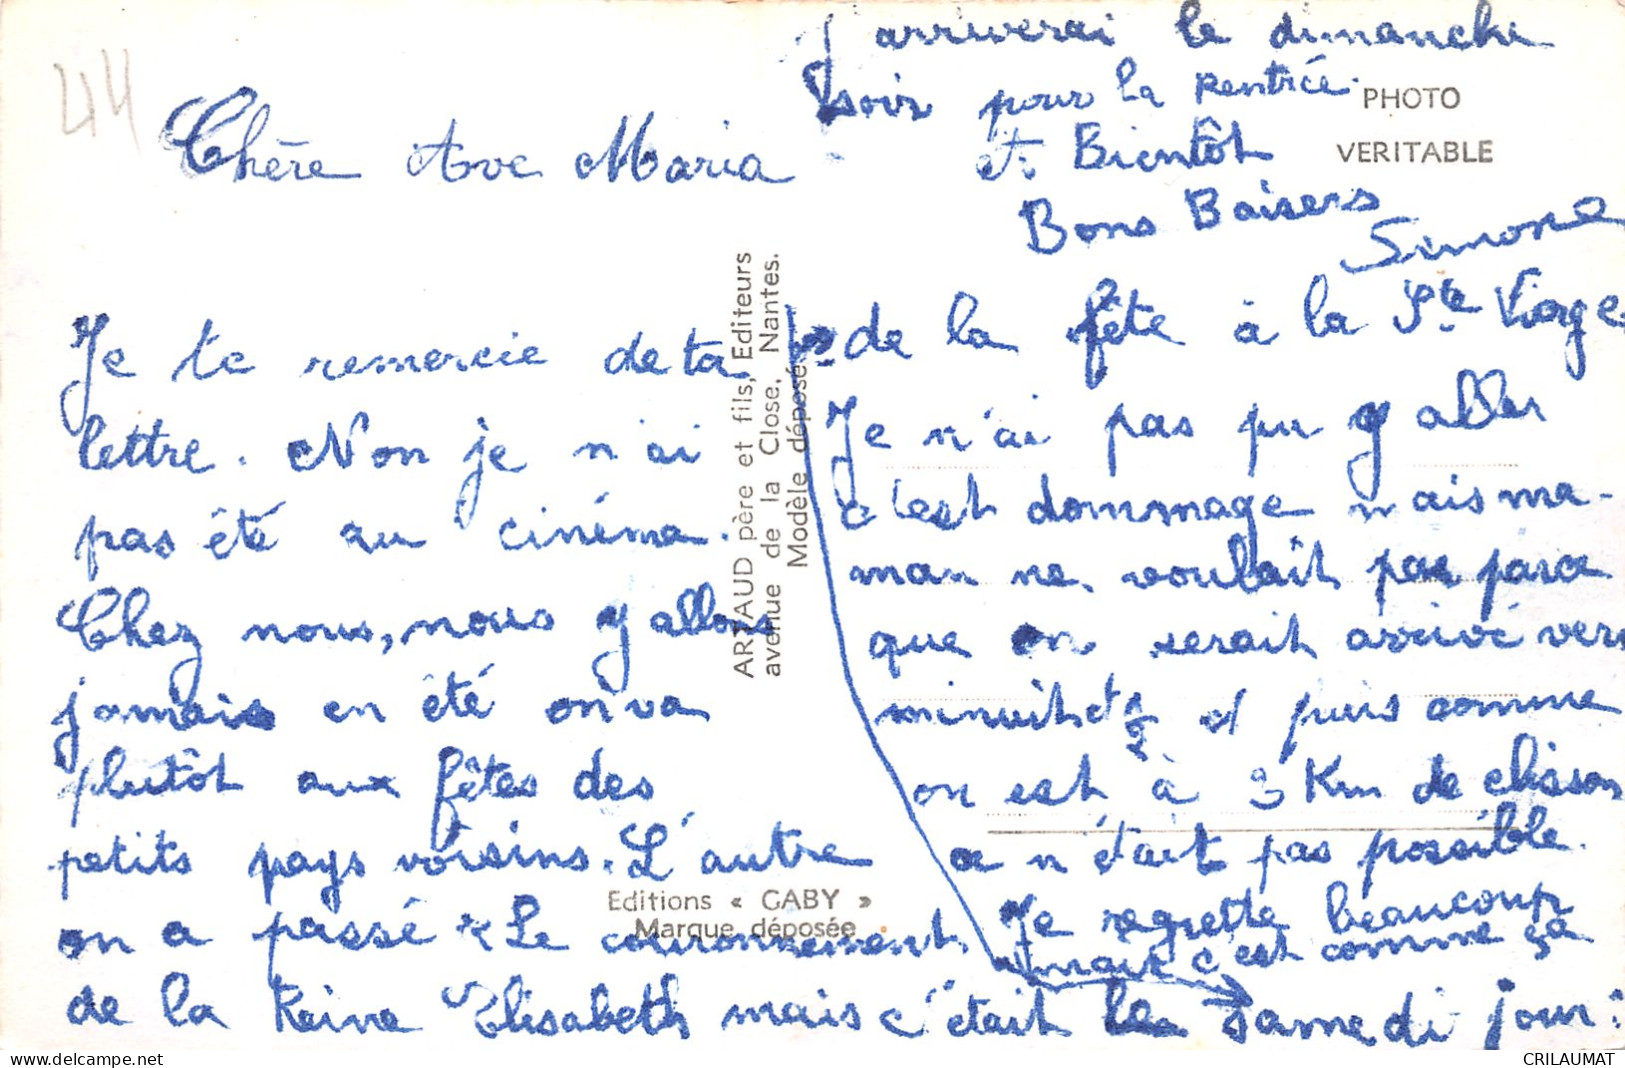 44
Chère Ave Maria
Je te remercie de ta
lettre. Non je n'ai
pas été au cinéma.
Chez nous, nous y allons
jamais en été on va
plutôt aux fêtes des
petits pays voisins. L'autre
on a passé « Le couronnement
de la Reine Elisabeth mais c'était le samedi jour
de la fête à la Ste Vierge
Je n'ai pas pu y aller
c'est dommage mais ma-
man ne voulait pas parce
que on serait arrivé vers
minuit et 1/2 et puis comme
on est à 3 Km de clisson
n'était pas possible.
Je regrette beaucoup
mais c'est comme ça
J'arriverai le dimanche
soir pour la rentrée.
et Bientôt
Bons Baisers
Simone
PHOTO
VERITABLE
ARTAUD père et fils, Editeurs
avenue de la Close, Nantes.
Modèle déposé
Editions « GABY »
Marque déposée
CRILAUMAT